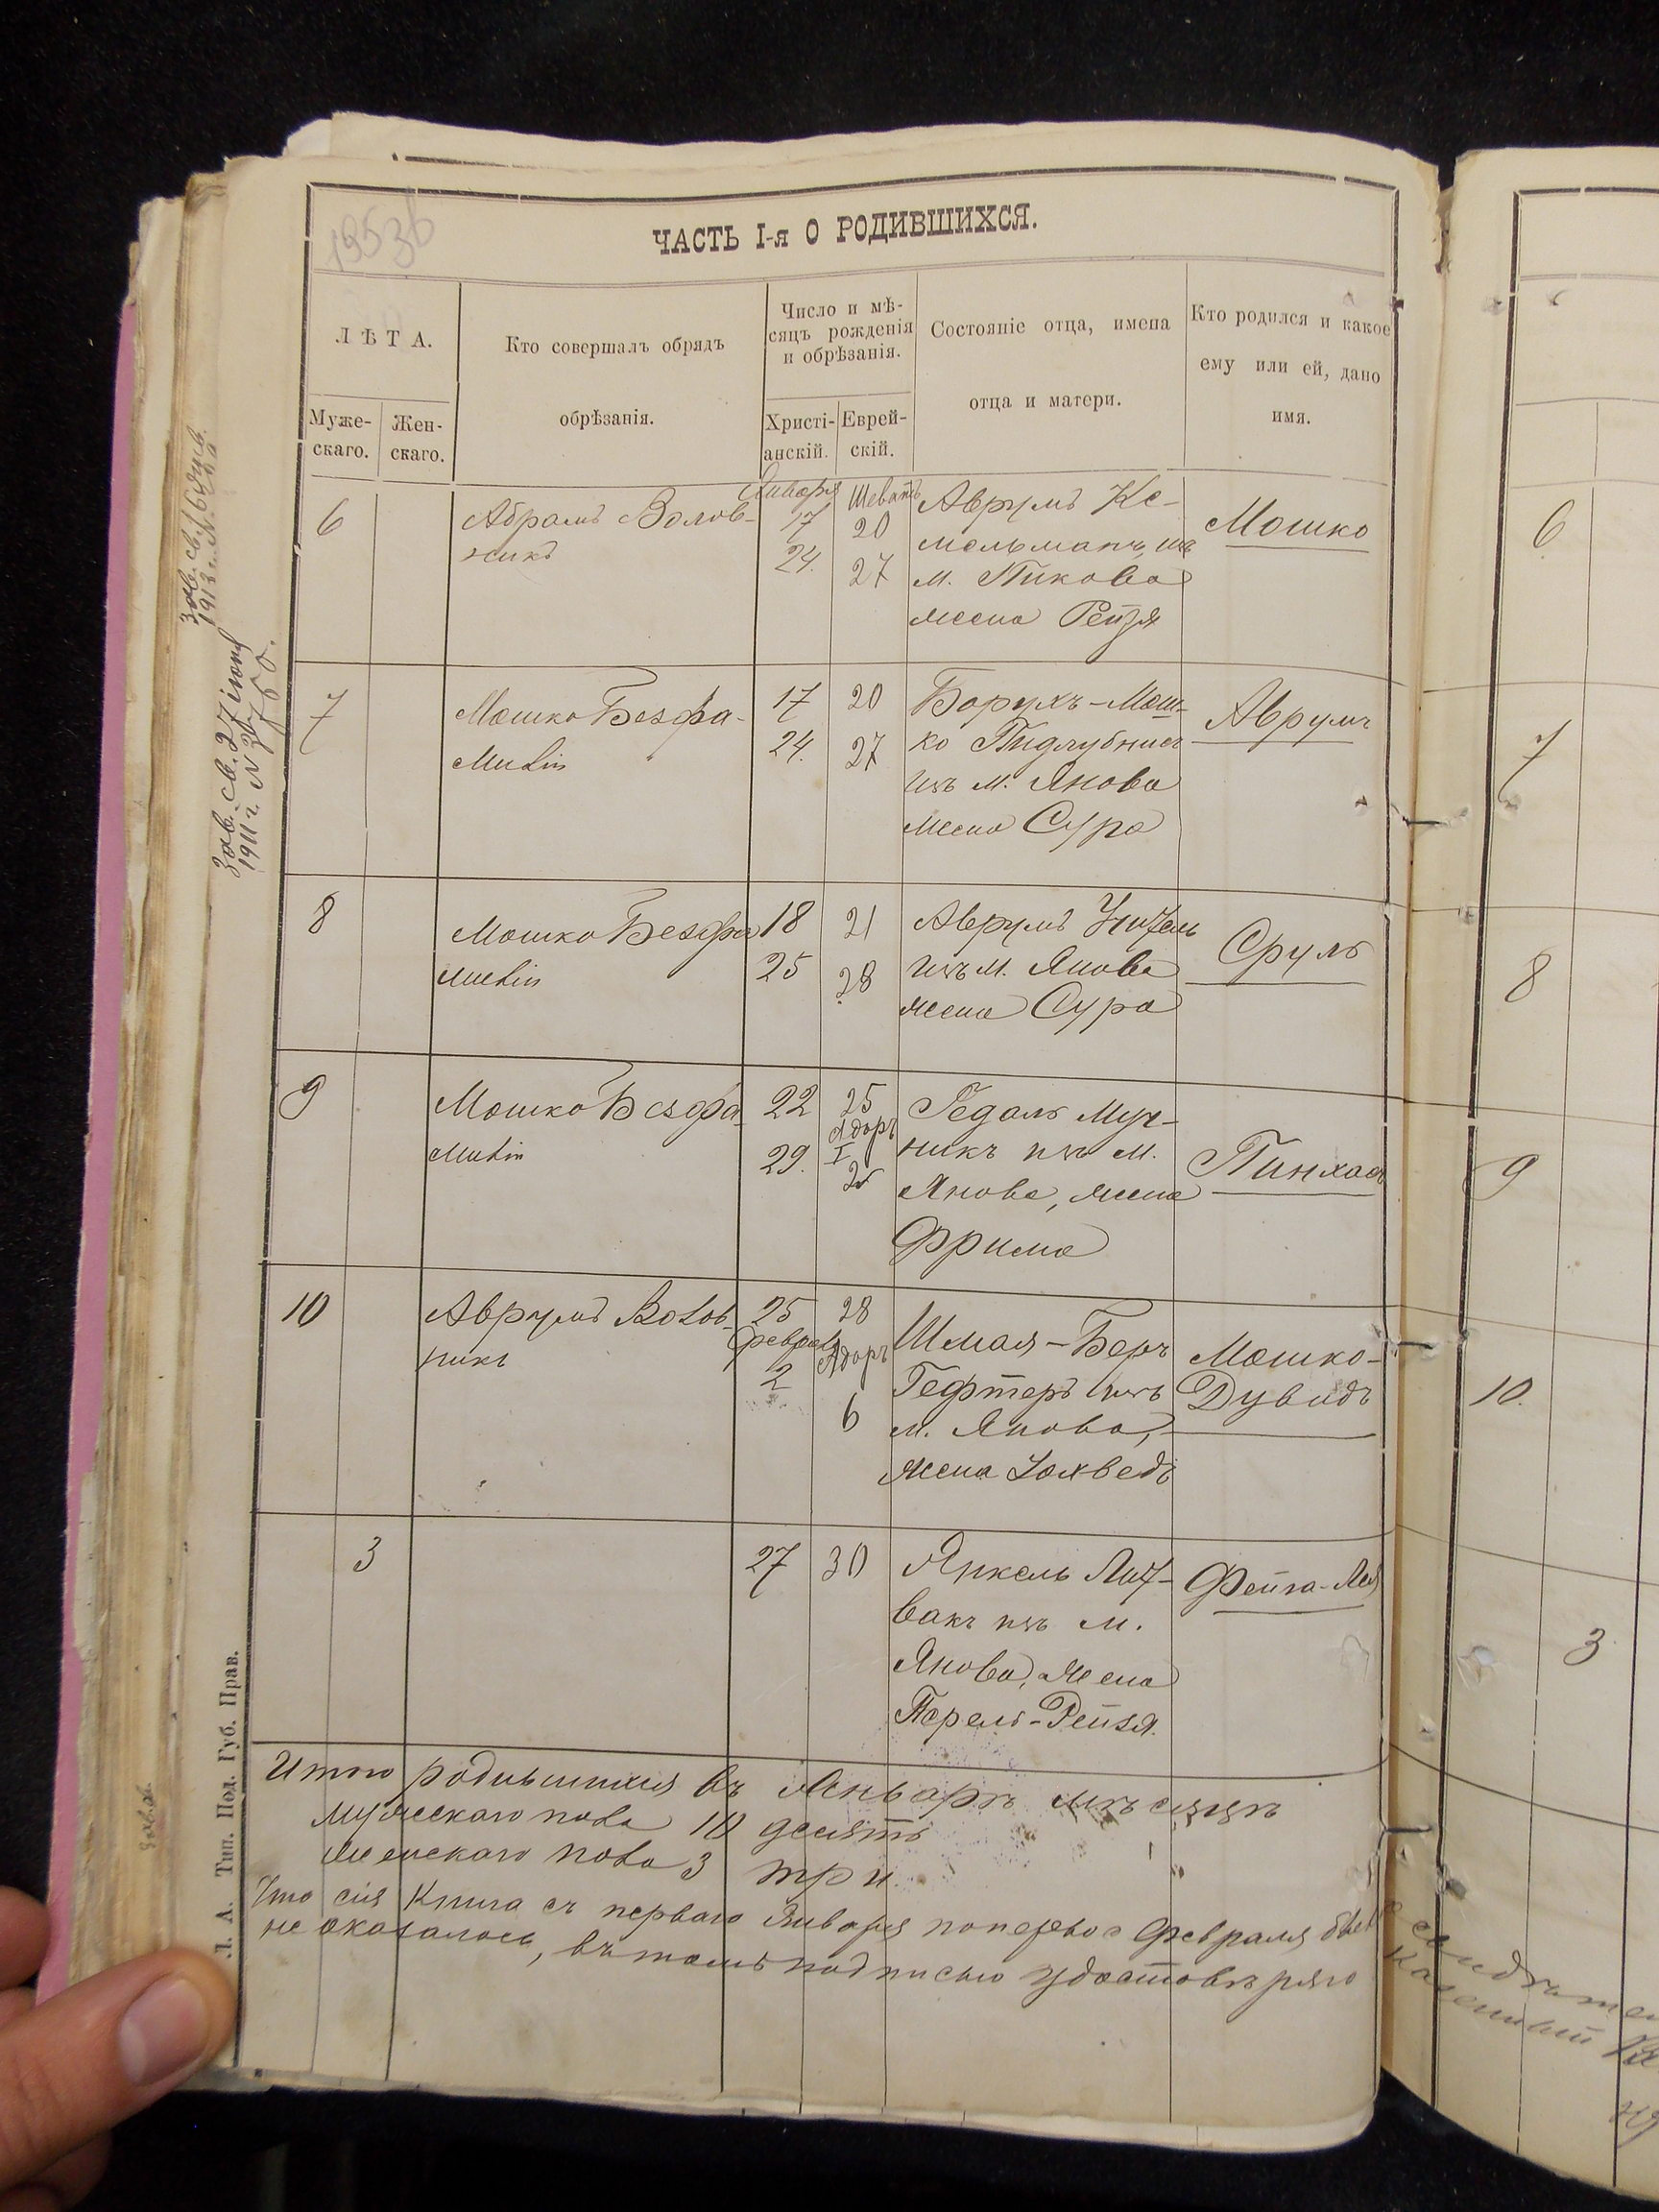 19536
ЧАСТЬ I-я О РОДИВШИХСЯ.
ЛѢТА.
Муже-
скаго.
Жен-
скаго.
Кто совершалъ обрядъ
обрѣзанія.
Число и мѣ-
сяцъ рожденія
и обрѣзанія.
Христі-
анскій.
Еврей-
скій.
Состояніе отца, имена
отца и матери.
Кто родился и какое
ему или ей, дано
имя.
6
Абрамъ Волов-
никъ
Января
17
24.
Шеватъ
20
27
Аврумъ Ке-
мельманъ, изъ
м. Пикова
жена Рейзя
Мошко
7
Мошко Безфа-
милін
17
24.
20
27
Борухъ-Мош-
ко Пидлубный
изъ м. Янова
жена Сура
Аврумъ
8
Мошко Безфа
милін
18
25
21
28
Аврумъ
изъ м. Янова
жена Сура
Сруль
9
Мошко Безфа
милін
22
29.
25
Адаръ
I
2
Гедаль Муч-
никъ изъ м.
Янова, жена
Фрима
Пинхас
10
Аврумъ Волов-
никъ
25
Февраля
2
28
Адаръ
6
Шмая-Беръ
Гефтеръ изъ
м. Янова,
жена Іохведъ
Мошко-
Дувидъ
3
27
30
Янкель Лит-
вакъ изъ м.
Янова, жена
Перель-Рейзя.
Фейга-Лея
Итого родившихся въ Январѣ мѣсяцѣ
Мужескаго пола 10 десять
Женскаго пола 3 три
Что сія Книга съ перваго Января по первое Февраля
не оказалось, въ томъ подписью удостовѣряю
Л. А. Тип. Под. Губ. Прав.
Зав. св. 27 іюня
1911 г. N
6
7
8
9
10.
3